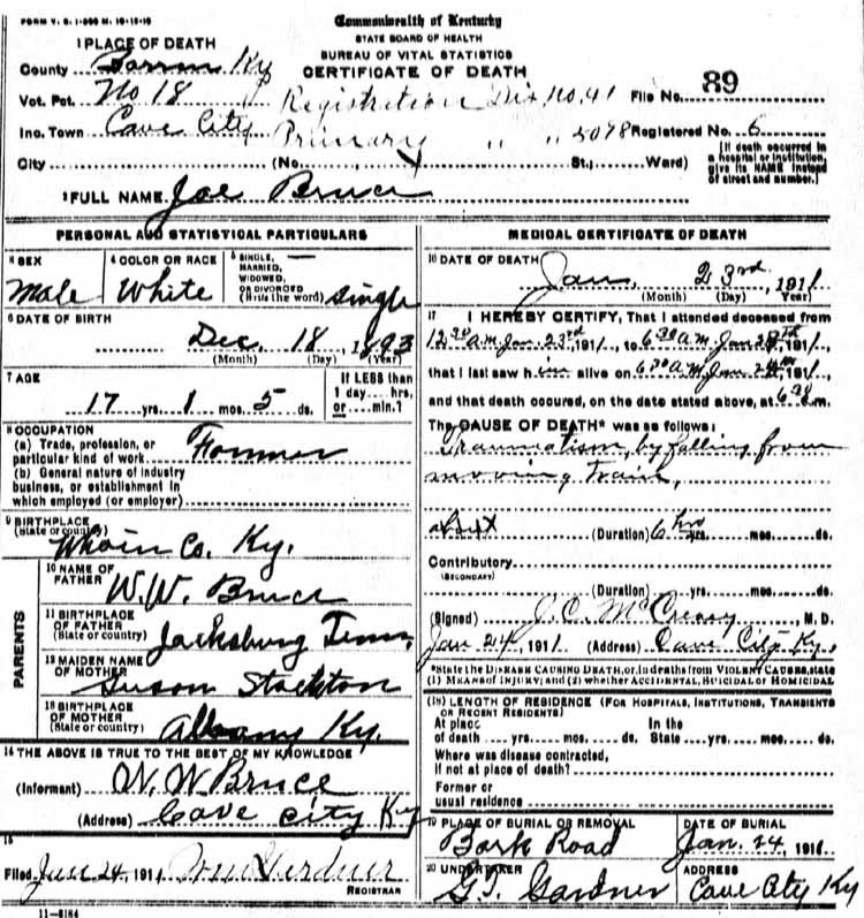 FORM V. S. 1-
Commonwealth of Kentucky
STATE BOARD OF HEALTH
BUREAU OF VITAL STATISTICS
CERTIFICATE OF DEATH
1 PLACE OF DEATH
County Barren Ky
Vot. Pct. No 18 Registration Dis. no. 41 File No. 89
Inc. Town Cave City Primary " " 5078 Registered No. 6
City (No. St.; Ward)
[If death occurred in
a hospital or institution,
give its NAME instead
of street and number.]
2 FULL NAME Joe Bruce
PERSONAL AND STATISTICAL PARTICULARS
3 SEX
Male
4 COLOR OR RACE
White
5 SINGLE,
MARRIED,
WIDOWED,
OR DIVORCED
(Write the word) Single
6 DATE OF BIRTH
Dec. 18, 1893
(Month) (Day) (Year)
7 AGE
17 yrs. 1 mos. 5 ds.
If LESS than
1 day.... hrs,
or.... min.?
8 OCCUPATION
(a) Trade, profession, or
particular kind of work Farmer
(b) General nature of industry
business, or establishment in
which employed (or employer)
9 BIRTHPLACE
(State or county)
Co. Ky.
PARENTS
10 NAME OF
FATHER W. W. Bruce
11 BIRTHPLACE
OF FATHER
(State or country) Jacksburg Tenn,
12 MAIDEN NAME
OF MOTHER
Susan Stockton
13 BIRTHPLACE
OF MOTHER
(State or country) Albany Ky.
14 THE ABOVE IS TRUE TO THE BEST OF MY KNOWLEDGE
(Informant) W. W Bruce
(Address) Cave City Ky
15
Filed Jan 24, 1911 Gardner
REGISTRAR
11-3184
MEDICAL CERTIFICATE OF DEATH
16 DATE OF DEATH
Jan. 23rd, 1911
(Month) (Day) Year)
17 I HEREBY CERTIFY, That I attended deceased from
12 30 A.M. Jan. 23rd, 1911, to 6 30 A.M. Jan, 1911,
that I last saw him alive on 6 30 A.M. Jan, 1911,
and that death occured, on the date stated above, at 6 30 m.
The CAUSE OF DEATH* was as follows:
Traumatism, by falling from
moving train,
about (Duration) 6 hrs yrs. mos. ds.
Contributory
(SECONDARY)
(Duration) yrs. mos. ds.
(Signed) J. C. McCreary, M. D.
Jan 24, 1911 (Address) Cave City Ky.
*State the DISEASE CAUSING DEATH, or, in deaths from VIOLENT CAUSES, state
(1) MEANS of INJURY; and (2) whether ACCIDENTAL, SUICIDAL or HOMICIDAL
(18) LENGTH OF RESIDENCE (FOR HOSPITALS, INSTITUTIONS, TRANSIENTS
OR RECENT RESIDENTS)
At place In the
of death .... yrs. .... mos. .... ds. State .... yrs. .... mos. .... ds.
Where was disease contracted,
If not at place of death?
Former or
usual residence
19 PLACE OF BURIAL OR REMOVAL
Road
DATE OF BURIAL
Jan. 24, 1911
20 UNDERTAKER
G. T. Gardner
ADDRESS
Cave City Ky